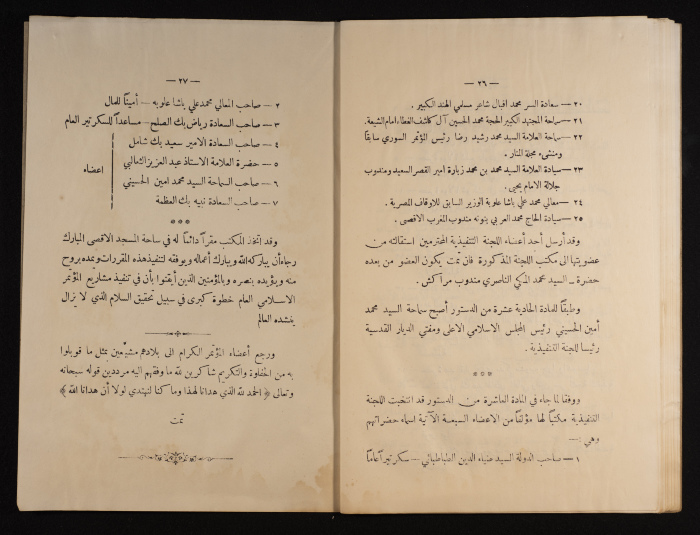 — ٢٦ —
٢٠ — سعادة السر محمد اقبال شاعر مسلمي الهند الكبير .
٢١ — سماحة المجتهد الكبير الحجة محمد الحسين آل كاشف الغطاء امام الشيعة .
٢٢ — سماحة العلامة السيد محمد رشيد رضا رئيس المؤتمر السوري سابقاً
ومنشىء مجلة المنار .
٢٣ — سيادة العلامة السيد محمد بن محمد زبارة امير القصر السعيد ومندوب
جلالة الامام يحيى .
٢٤ — معالي محمد علي باشا علوبة الوزير السابق للاوقاف المصرية .
٢٥ — سيادة الحاج محمد العربي بنونه مندوب المغرب الاقصى .
وقد أرسل أحد أعضاء اللجنة التنفيذية المحترمين استقالته من
عضويتها الى مكتب اللجنة المذكورة فان تمت يكون العضو من بعده
حضرة السيد محمد المكي الناصري مندوب مراكش .
وطبقاً للمادة الحادية عشرة من الدستور أصبح سماحة السيد محمد
أمين الحسيني رئيس المجلس الاسلامي الاعلى ومفتي الديار القدسية
رئيسا للجنة التنفيذية .
***
ووفقا لما جاء في المادة العاشرة من الدستور قد انتخبت اللجنة
التنفيذية مكتباً لها مؤلفاً من الاعضاء السبعة الآتية اسماء حضراتهم
وهي : —
١ — صاحب الدولة السيد ضياء الدين الطباطبائي — سكرتيراً عاماً
— ٢٧ —
٢ — صاحب المعالي محمد علي باشا علوبه — أميناً للمال
٣ — صاحب السعادة رياض بك الصلح — مساعداً للسكرتير العام
٤ — صاحب السعادة الامير سعيد بك شامل
٥ — حضرة العلامة الاستاذ عبد العزيز الثعالبي
اعضاء
٦ — صاحب السماحة السيد محمد امين الحسيني
٧ — صاحب السعادة نبيه بك العظمة
***
وقد اتخذ المكتب مقراً دائماً له في ساحة المسجد الاقصى المبارك
رجاء أن يباركه الله ويبارك أعماله ويوفقه لتنفيذ هذه المقررات ويمده بروح
منه ويؤيده بنصره وبالمؤمنين الذين أيقنوا بأن في تنفيذ مشاريع المؤتمر
الاسلامي العام خطوة كبرى في سبيل تحقيق السلام الذي لا يزال
ينشده العالم
ورجع أعضاء المؤتمر الكرام الى بلادهم مشيعين بمثل ما قوبلوا
به من الحفاوة والتكريم شاكرين لله ما وفقهم اليه مرددين قوله سبحانه
وتعالى ﴿ الحمد لله الذي هدانا لهذا وما كنا لنهتدي لولا أن هدانا الله ﴾
تمت